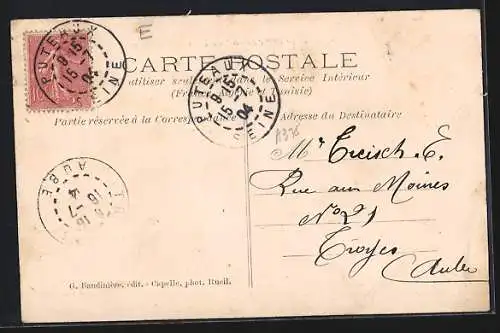 E
CARTE POSTALE
à utiliser seulement dans le Service Intérieur
(France, Algérie et Tunisie)
Partie réservée à la Correspondance
Adresse du Destinataire
PUTEAUX
9 15
15 - 7
04
SEINE
PUTEAUX
9 15
15 - 7
04
SEINE
AUBE
16 - 7
04
Mr Creisch. E.
Rue aux Moines
No 21
Troyes
Aube
G. Baudinière, édit. - Capelle, phot. Rueil.